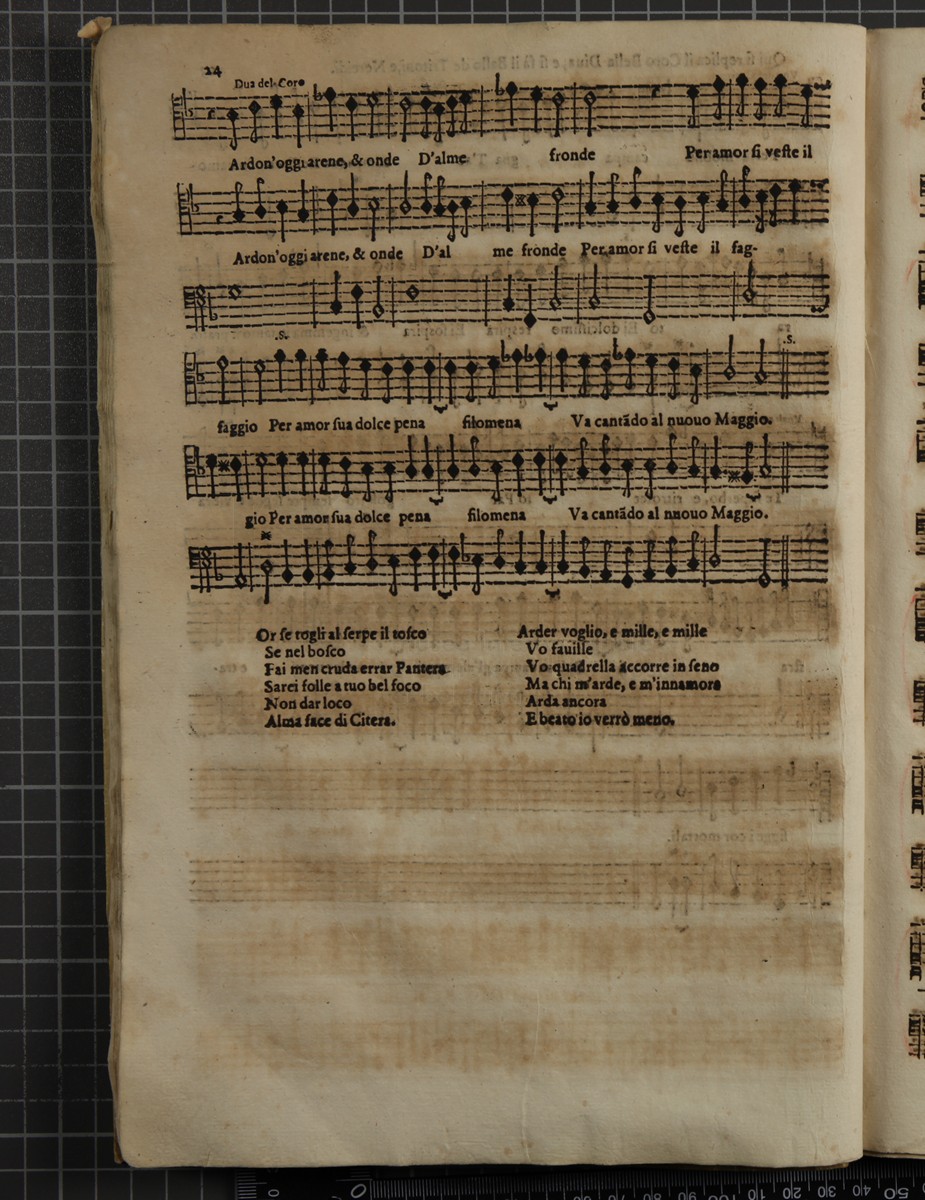 24
Dua del Coro
Ardon'oggi arene, & onde D'alme fronde Per amor si veste il
Ardon'oggi arene, & onde D'al me fronde Per amor si veste il fag-
.S. .S.
faggio Per amor sua dolce pena filomena Va cantãdo al nuouo Maggio.
gio Per amor sua dolce pena filomena Va cantãdo al nuouo Maggio.
Or se togli al serpe il tosco
Se nel bosco
Fai men cruda errar Pantera
Sarei folle a tuo bel foco
Non dar loco
Alma face di Citera.
Arder voglio, e mille, e mille
Vo fauille
Vo quadrella accorre in seno
Ma chi m'arde, e m'innamora
Arda ancora
E beato io verrò meno.